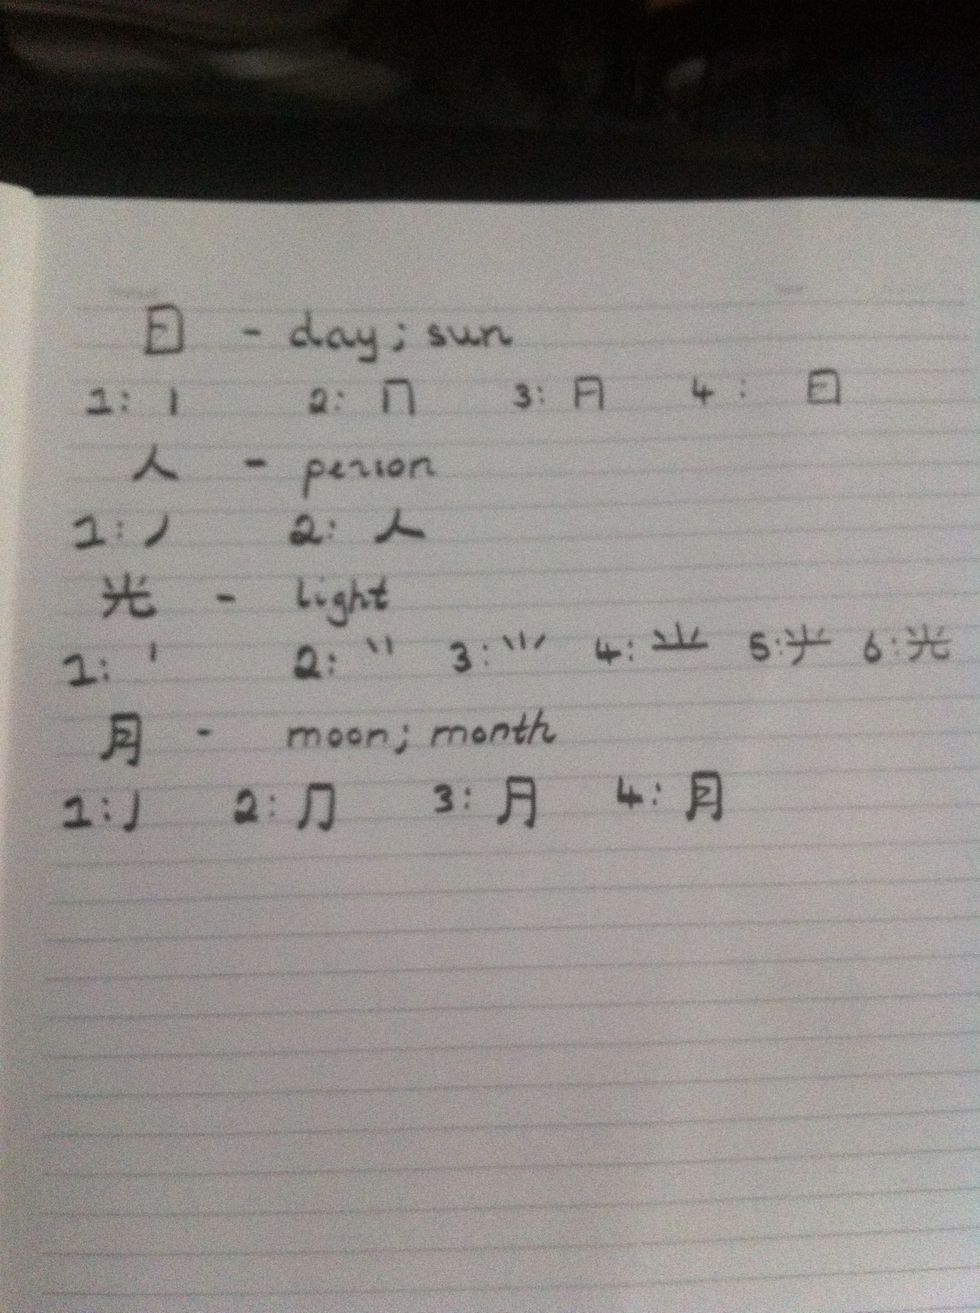 日 - day; sun
1: 丨 2: 冂 3: 日 4: 日
人 - person
1: 丿 2: 人
光 - light
1: 丨 2: 3: 4: 5: 6: 光
月 - moon; month
1: 丿 2: 冂 3: 月 4: 月